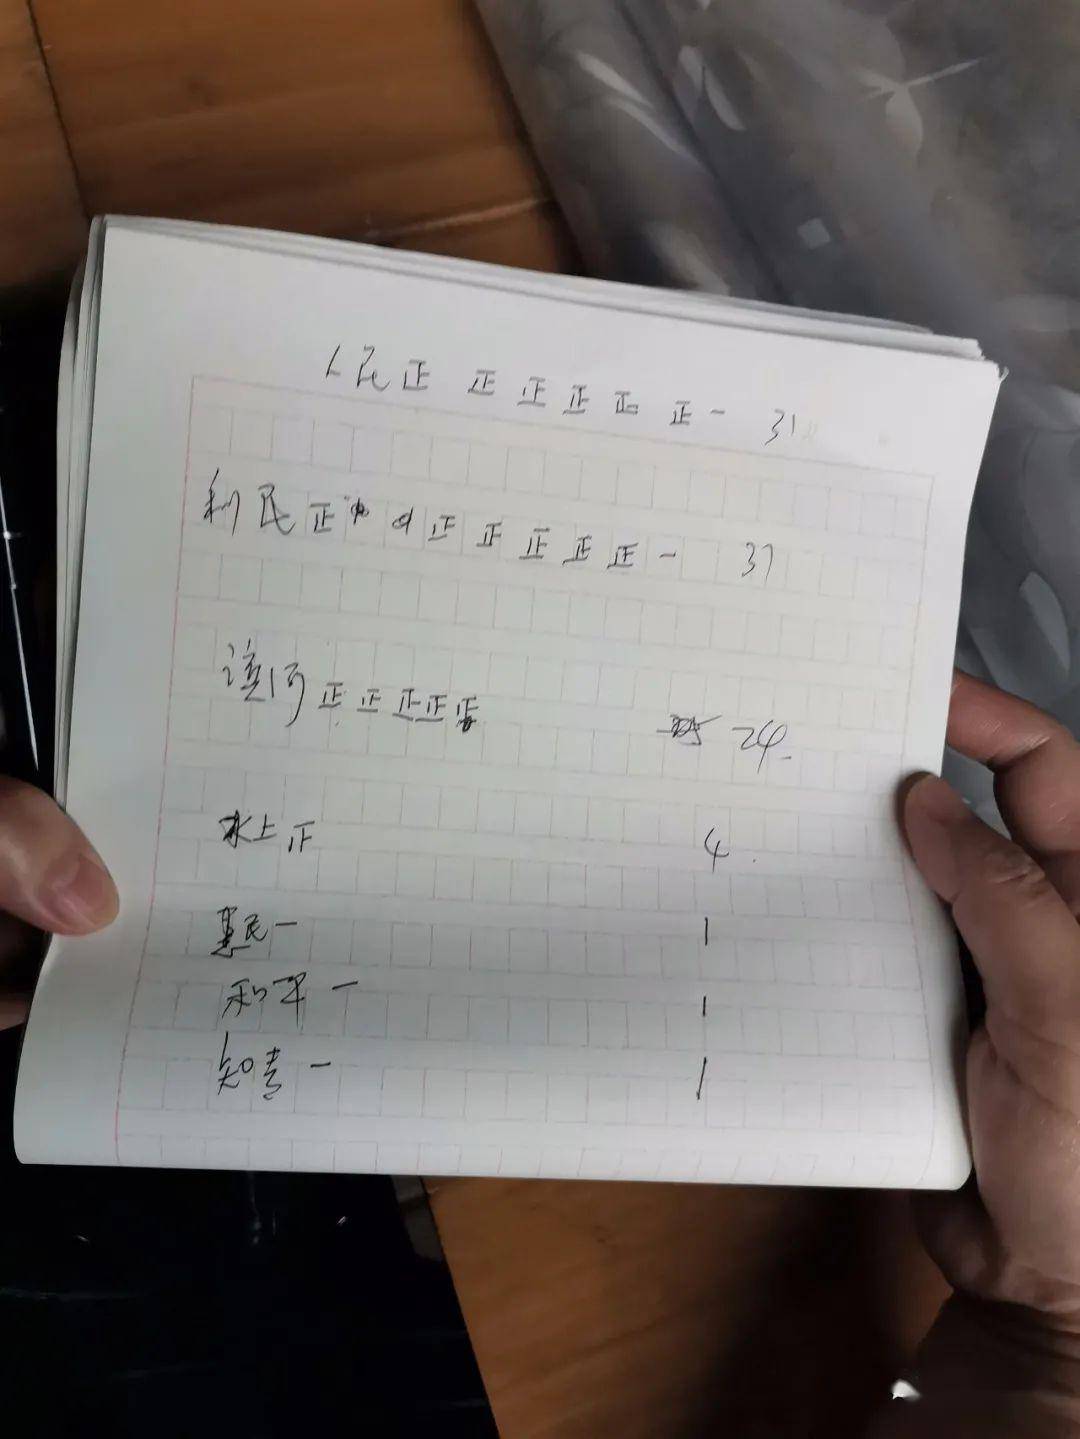 人民正 正正正正 正一 31
利民正 正 正 正 正 正一 37
正 正 正 正 24
水上正 4
惠民一 1
和平一 1
知青一 1